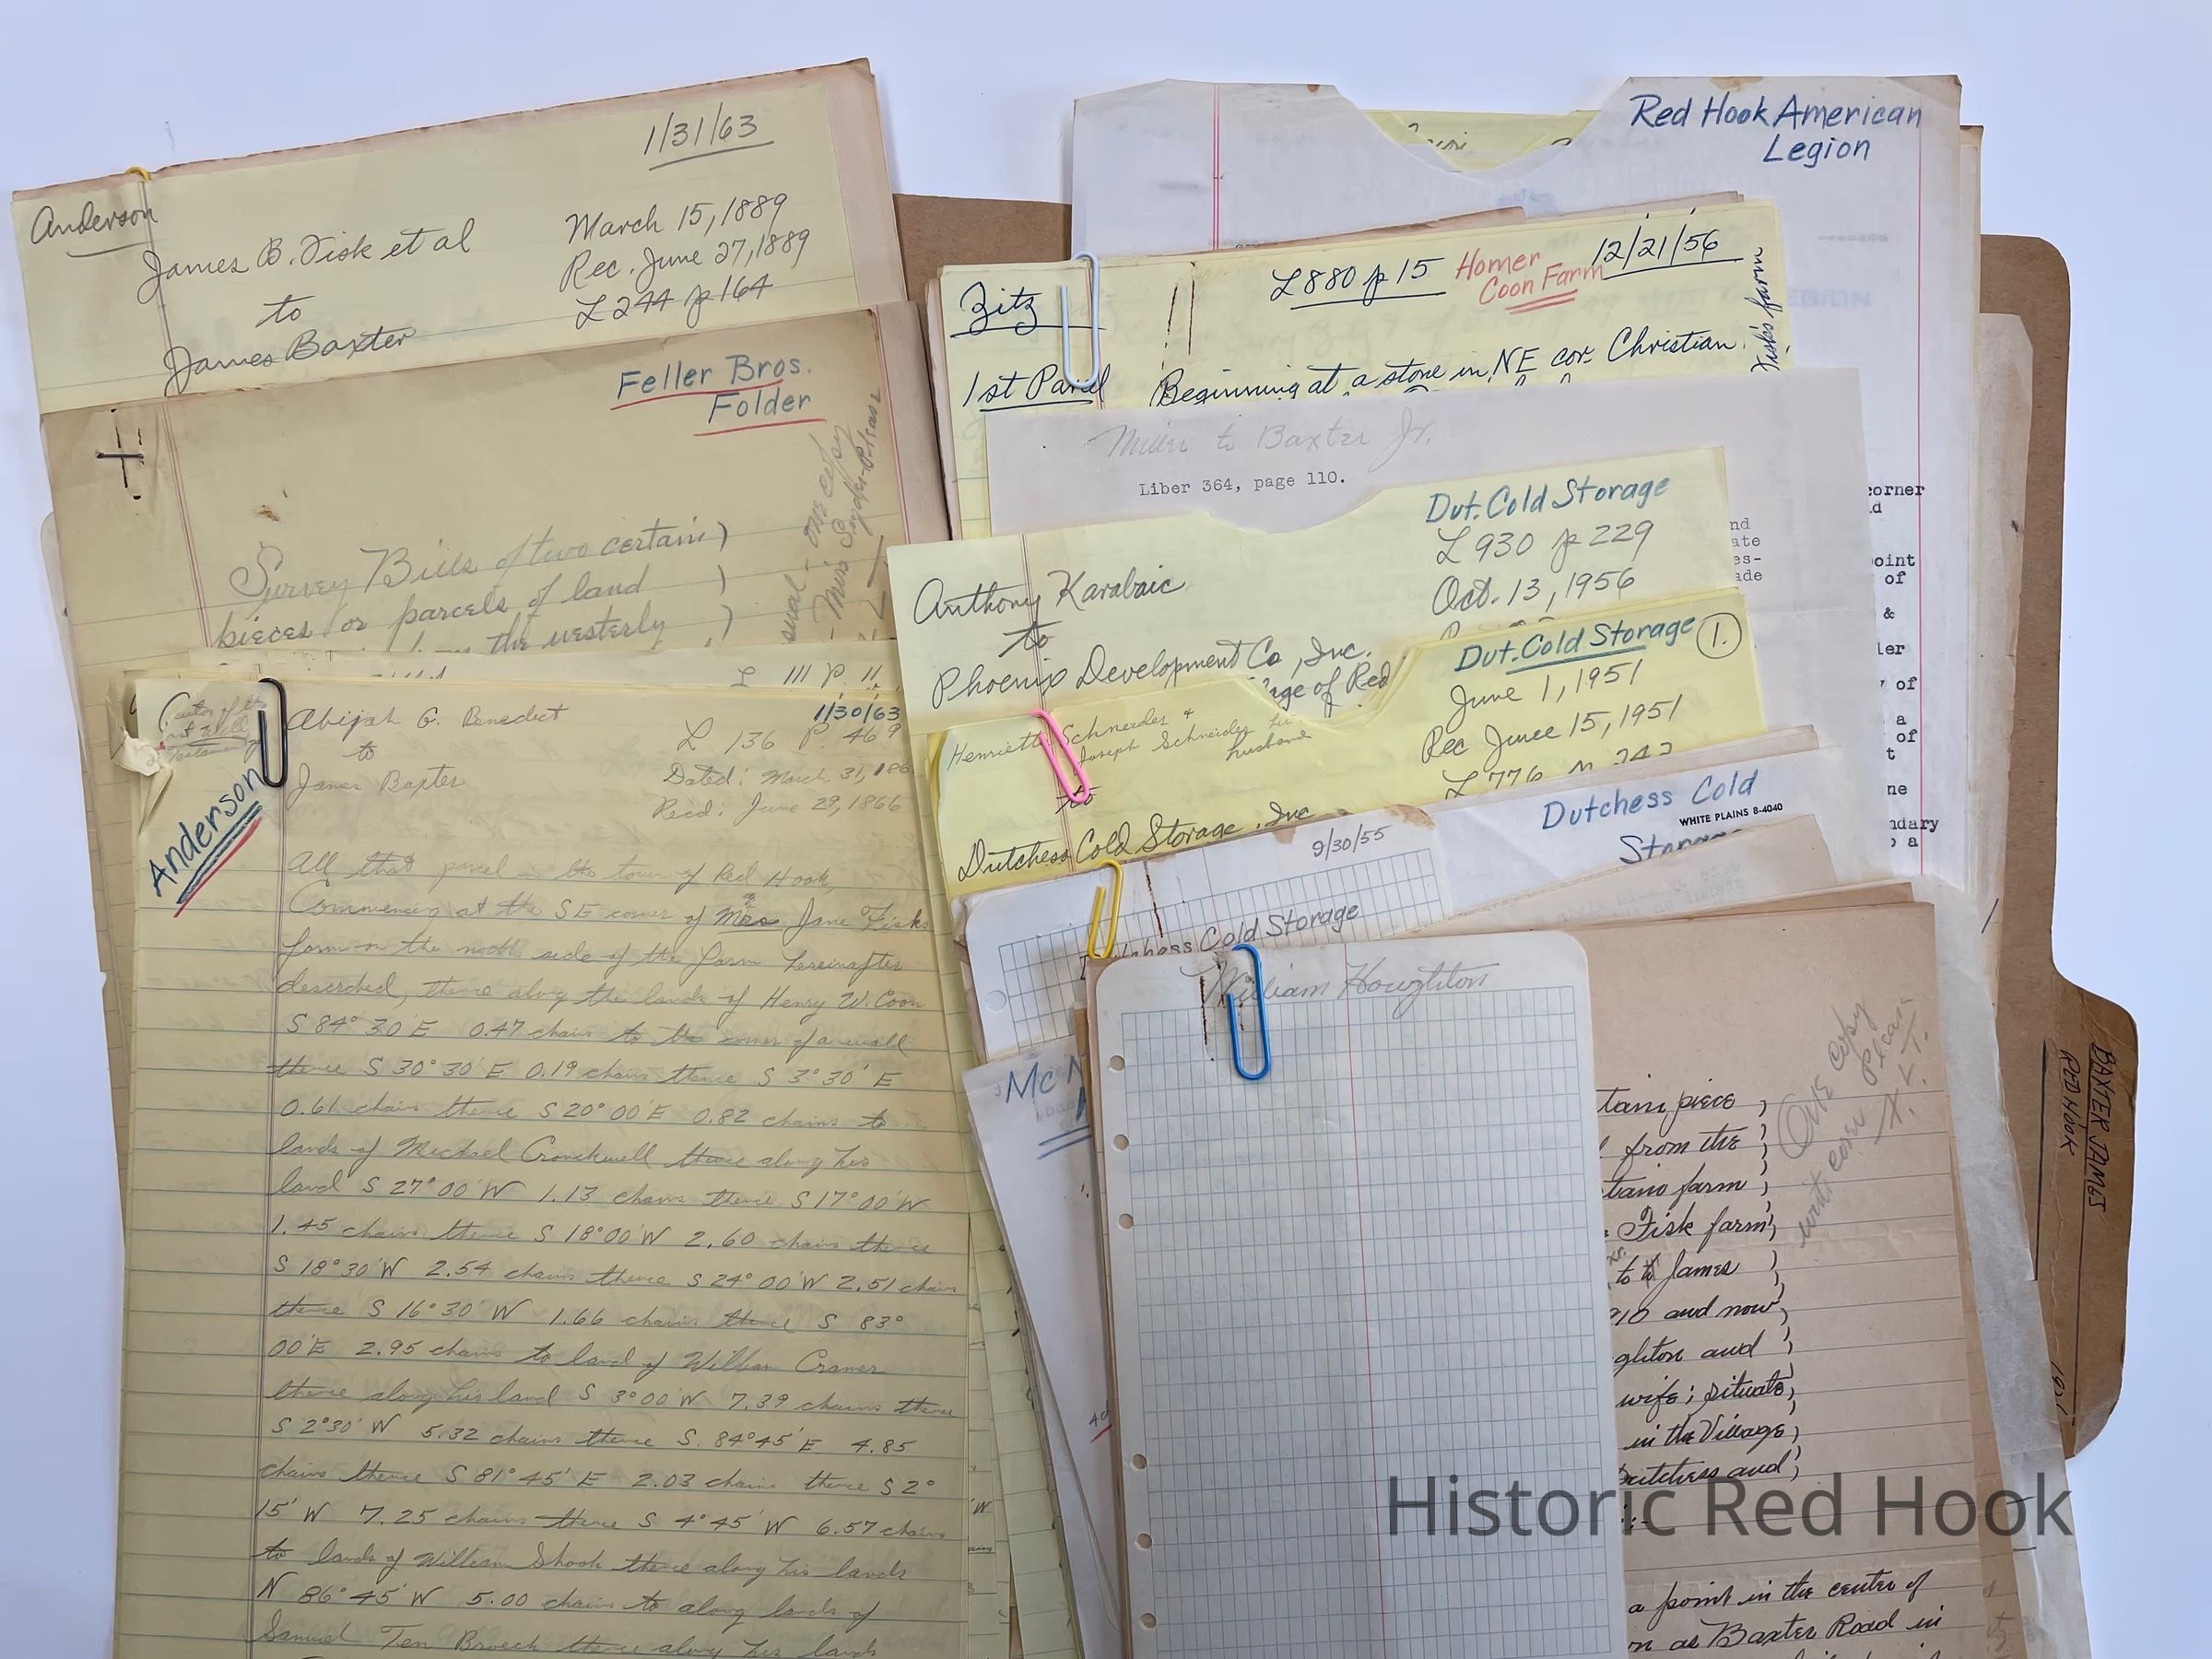 1/31/63
Anderson
James B. Fisk et al
to
James Baxter
March 15, 1889
Rec. June 27, 1889
L 244 p 164
Feller Bros.
Folder
Survey Bills of two certain )
pieces or parcels of land )
the westerly )
one copy
Miss Snyder-Please
L 111 P. 11
1/30/63
Abijah G. Benedict
to
James Baxter
L 136 P. 469
Dated: March 31, 186
Recd: June 29, 1866
Anderson
All that parcel in the town of Red Hook,
Commencing at the SE corner of Mrs Jane Fisks
farm on the north side of the farm hereinafter
described, thence along the lands of Henry W. Coon
S 84° 30' E 0.47 chains to the corner of a wall
thence S 30° 30' E 0.19 chains thence S 3° 30' E
0.61 chains thence S 20° 00' E 0.82 chains to
lands of Michael Cronckwell thence along his
land S 27° 00' W 1.13 chains thence S 17° 00' W
1.45 chains thence S 18° 00' W 2.60 chains thence
S 18° 30' W 2.54 chains thence S 24° 00' W 2.51 chains
thence S 16° 30' W 1.66 chains thence S 83°
00' E 2.95 chains to land of William Cramer
thence along his land S 3° 00' W 7.39 chains thence
S 2° 30' W 5.32 chains thence S. 84° 45' E 4.85
chains thence S 81° 45' E 2.03 chains thence S 2°
15' W 7.25 chains thence S 4° 45' W 6.57 chains
to lands of William Shook thence along his lands
N 86° 45' W 5.00 chains to along lands of
Samuel Ten Broeck thence along his lands
Red Hook American
Legion
Zitz
L 880 p 15
Homer
Coon Farm
12/21/56
Fisk's farm
1st Parcel
Beginning at a stone in NE cor. Christian
Miller to Baxter Jr.
Liber 364, page 110.
Dut. Cold Storage
L 930 p 229
Oct. 13, 1956
Anthony Karabaic
to
Phoenix Development Co, Inc.
of Red
Dut. Cold Storage 1.
June 1, 1951
Rec June 15, 1951
L 776
Henrietta Schneider &
Joseph Schneider her
husband
to
Dutchess Cold Storage, Inc
Dutchess Cold
WHITE PLAINS 8-4040
9/30/55
Cold Storage
William Houghton
Mc
corner
point
of
&
of
a
of
One copy
Please
with cover
piece ;
from the ;
farm ;
Fisk farm ;
to James ;
and now ;
and ;
wife ; situate ;
in the Village ;
and ;
a point in the center of
as Baxter Road in
BAXTER JAMES
RED HOOK
Historic Red Hook